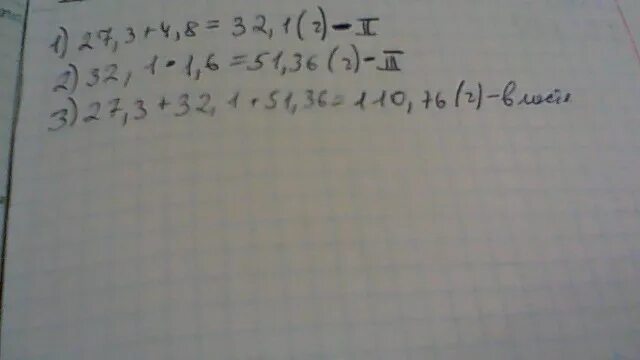 1) 27,3+4,8=32,1(г)-II
2) 32,1·1,6=51,36(г)-III
3) 27,3+32,1+51,36=110,76(г)-